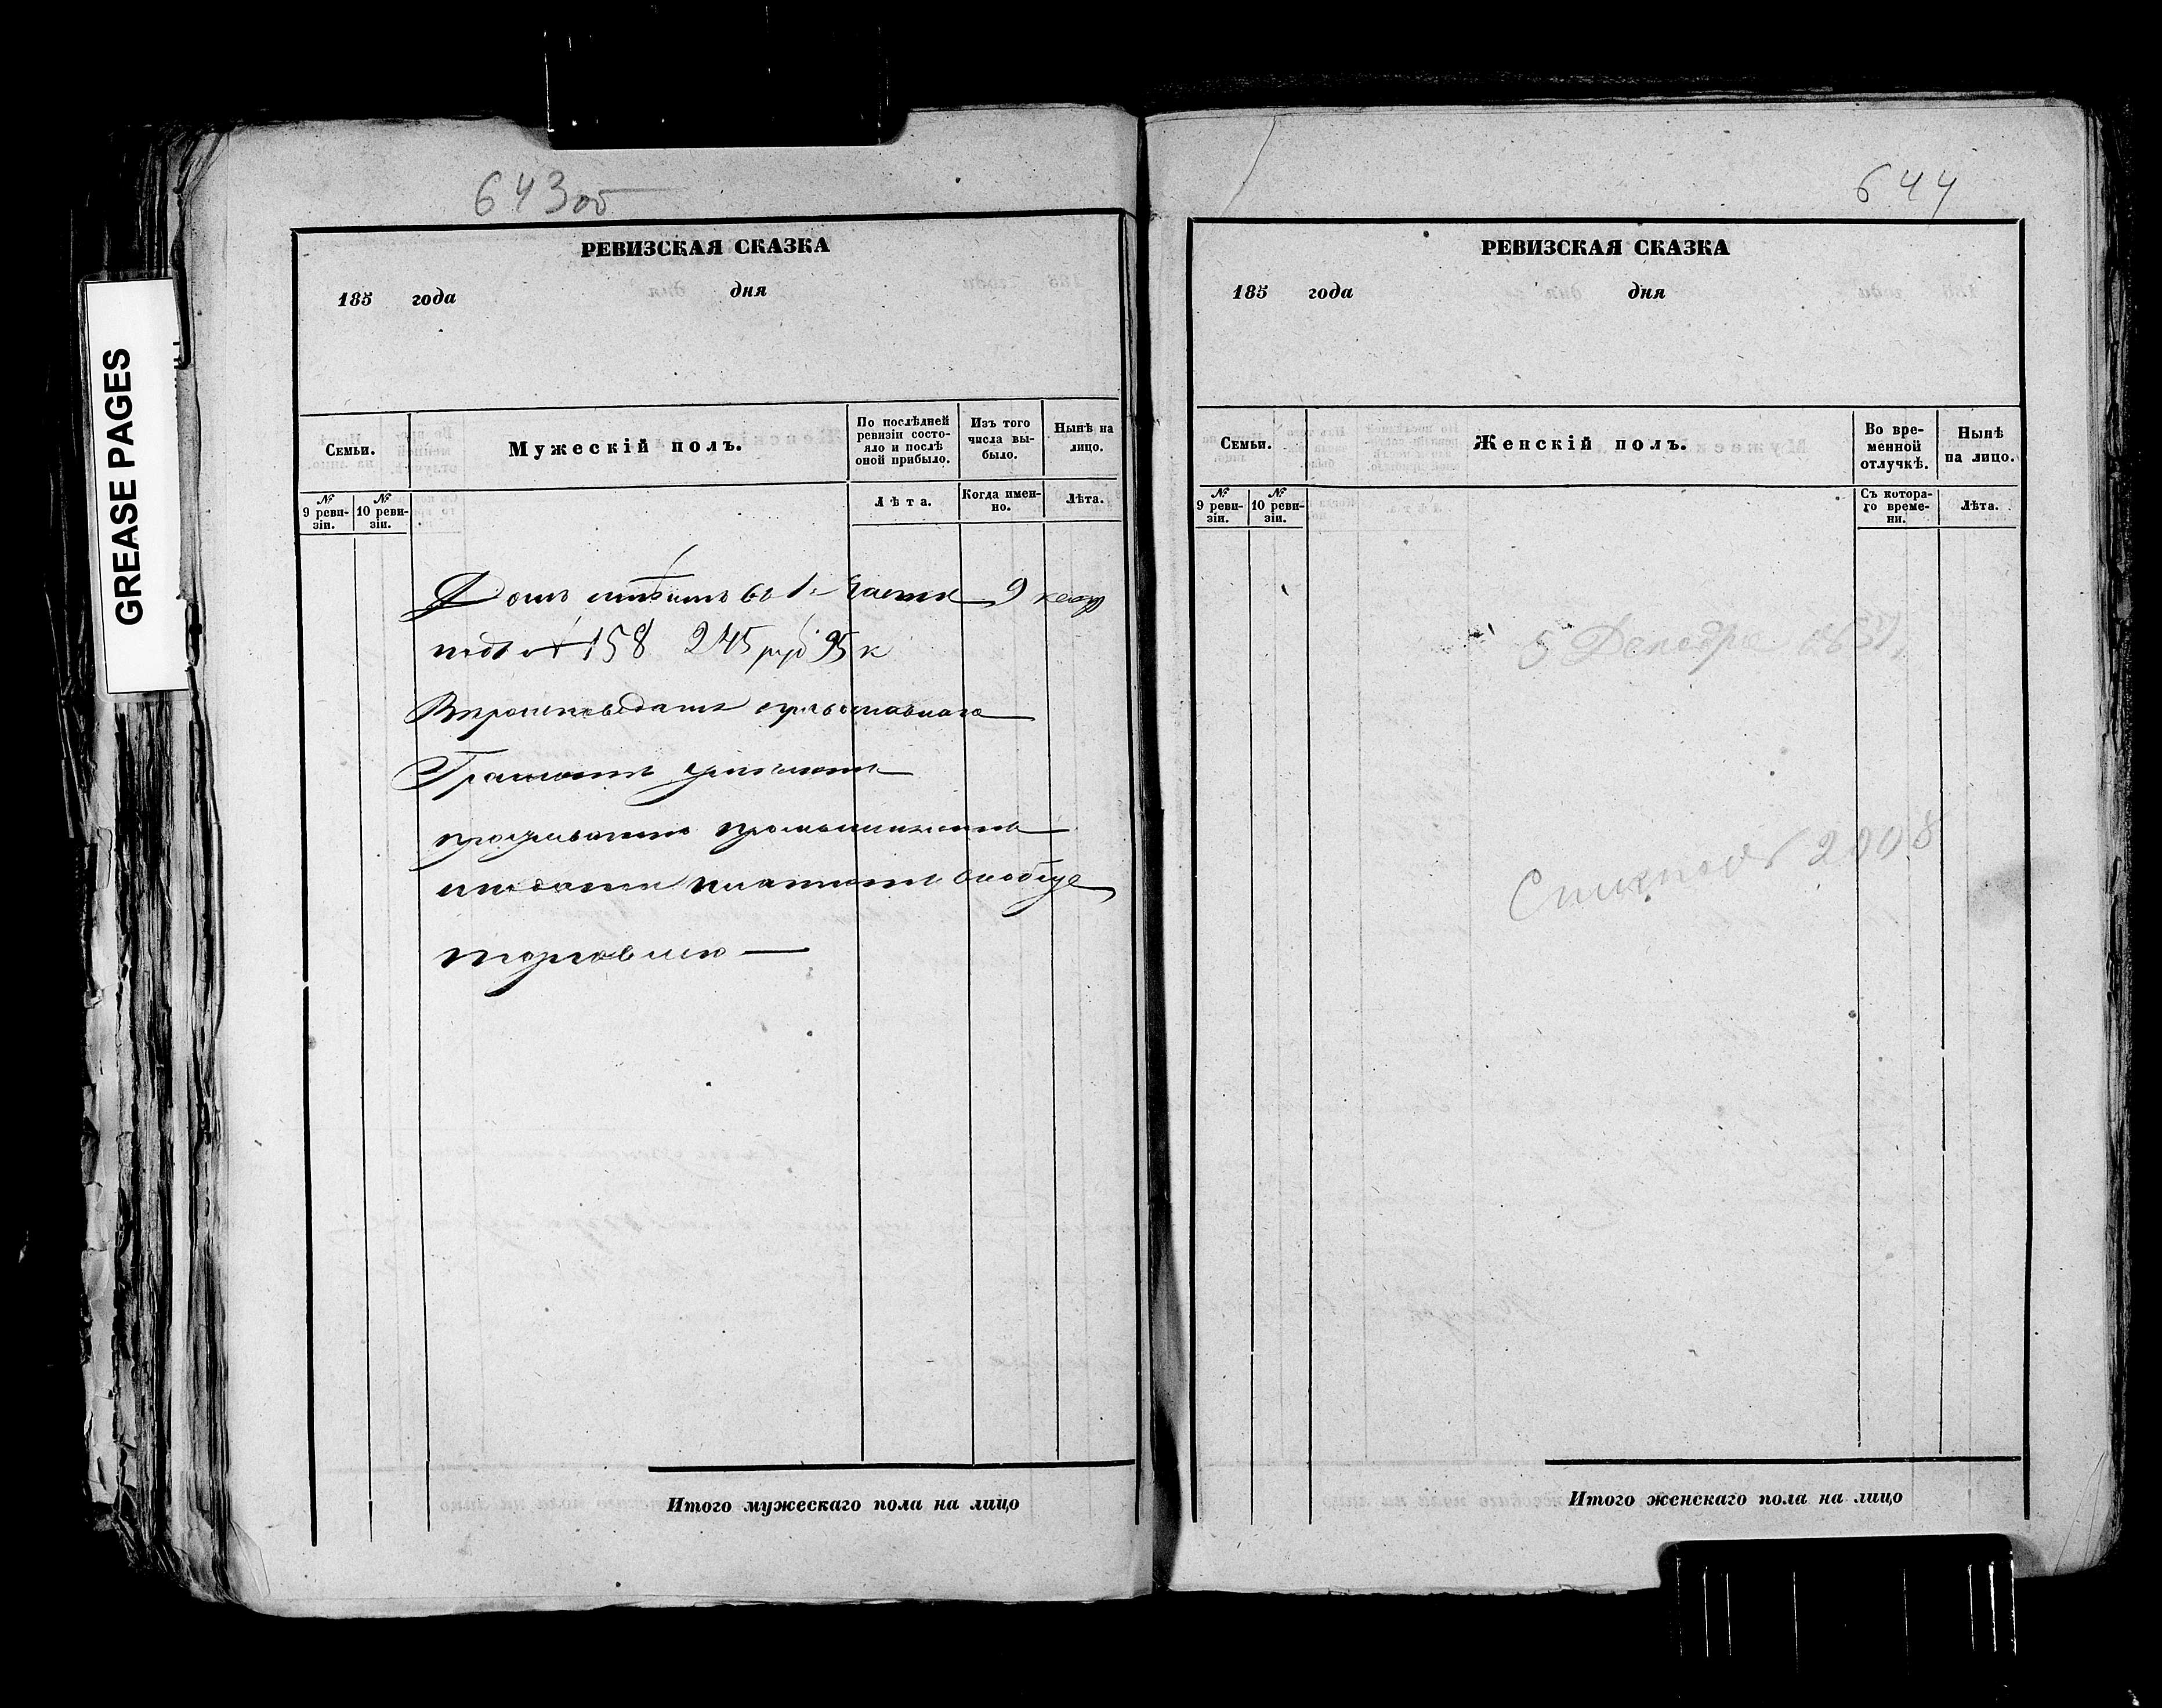 643об
РЕВИЗСКАЯ СКАЗКА
185 года дня
Семьи.
Мужескій полъ.
По послѣдней ревизіи состояло и послѣ оной прибыло.
Изъ того числа выбыло.
Нынѣ на лицо.
№ 9 ревизіи.
№ 10 ревизіи.
Лѣта.
Когда именно.
Лѣта.
Домъ имѣетъ въ 1й части 9 квар
подъ № 158 245 руб 95 к
Вѣроисповеданія православнаго
Грамотѣ
торговлею —
Итого мужескаго пола на лицо
644
РЕВИЗСКАЯ СКАЗКА
185 года дня
Семьи.
Женскій полъ.
Во временной отлучкѣ.
Нынѣ на лицо.
№ 9 ревизіи.
№ 10 ревизіи.
Съ котораго времени.
Лѣта.
5 Декабря
2908
Итого женскаго пола на лицо
GREASE PAGES